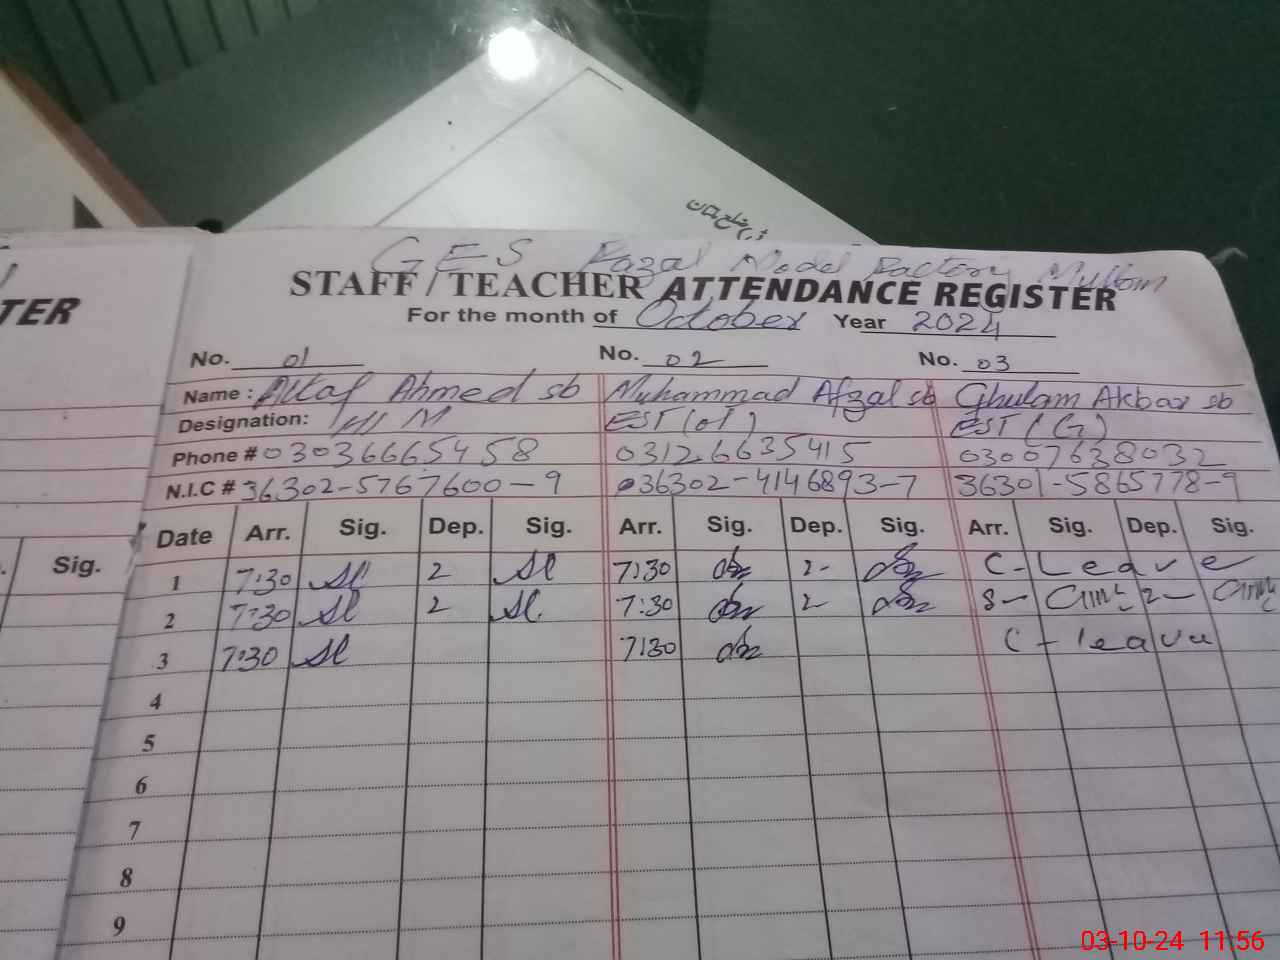 ضلع ملتان
GES Fazal Model Factory Multan
TER
STAFF / TEACHER ATTENDANCE REGISTER
For the month of October Year 2024
No. 01 No. 02 No. 03
Name : Altaf Ahmed sb Muhammad Afzal sb Ghulam Akbar sb
Designation: H M EST (OT) EST (G)
Phone # 03036665458 03126635415 03007638032
N.I.C # 36302-5767600-9 36302-4146893-7 36301-5865778-9
Sig. Date Arr. Sig. Dep. Sig. Arr. Sig. Dep. Sig. Arr. Sig. Dep. Sig.
1 7:30 2 7:30 2- C-Leave
2 7:30 2 7:30 2 8- 2-
3 7:30 7:30 C-leave
4
5
6
7
8
9
03-10-24 11:56